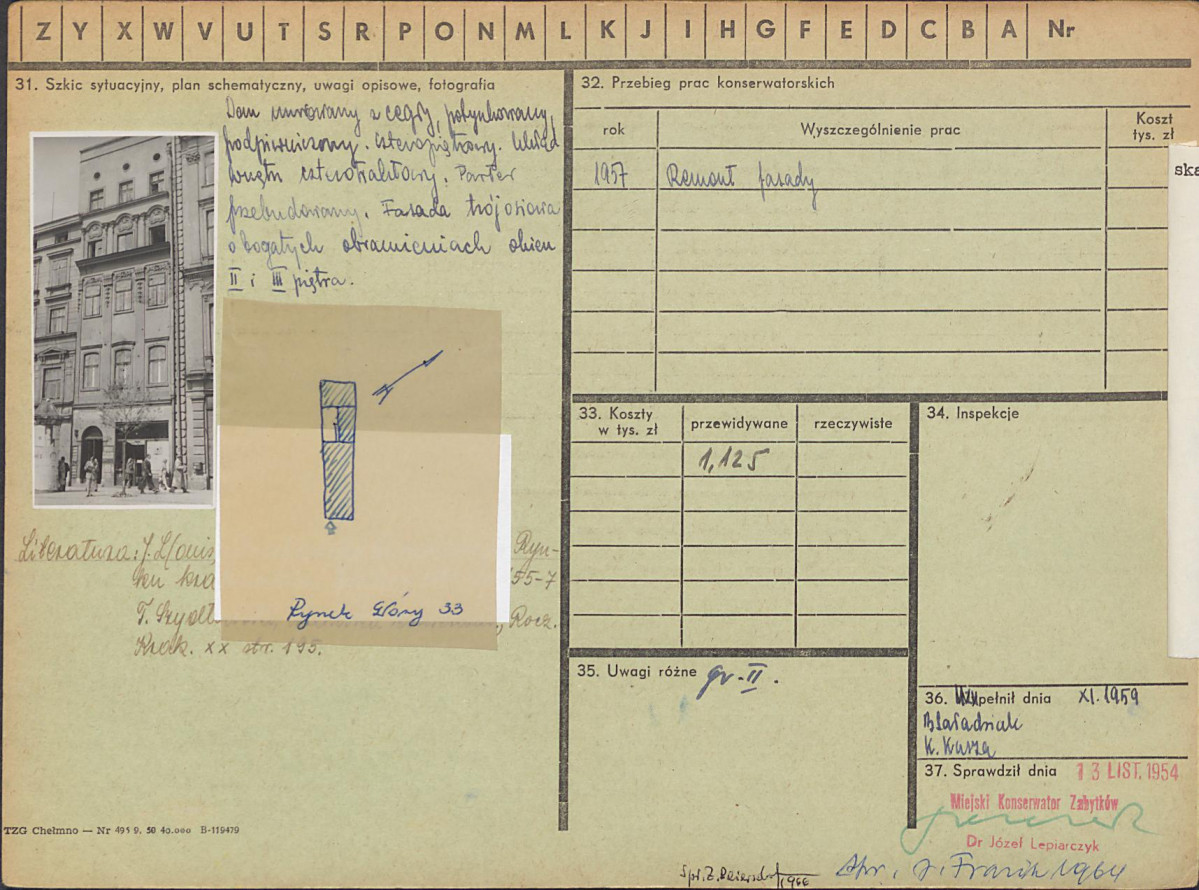 Z Y X W V U T S R P O N M L K J I H G F E D C B A Nr
31. Szkic sytuacyjny, plan schematyczny, uwagi opisowe, fotografia
Dom murowany z cegły, potynkowany,
podpiwniczony. Czteropiętrowy. Układ
wnętrz czterotraktowy. Parter
przebudowany. Fasada trójosiowa
o bogatych obramieniach okien
II i III piętra.
Rynek Gówy 33
Literatura: J. Ryn-
ku kra 55-7
T. Szydł , Rocz.
Krak. XX str. 195.
TZG Chełmno — Nr 495 9. 58 40.000 B-119479
32. Przebieg prac konserwatorskich
rok Wyszczególnienie prac Koszt
tys. zł
1957 Remont fasady
ska
33. Koszty
w tys. zł przewidywane rzeczywiste
1,125
34. Inspekcje
35. Uwagi różne gr-II.
36. Uzupełnił dnia XI.1959
K. Kusza
37. Sprawdził dnia 13 LIST. 1954
Miejski Konserwator Zabytków
Dr Józef Lepiarczyk
Spr. Z. Beiersdorf 1966
Spr. J. Frazik 1964